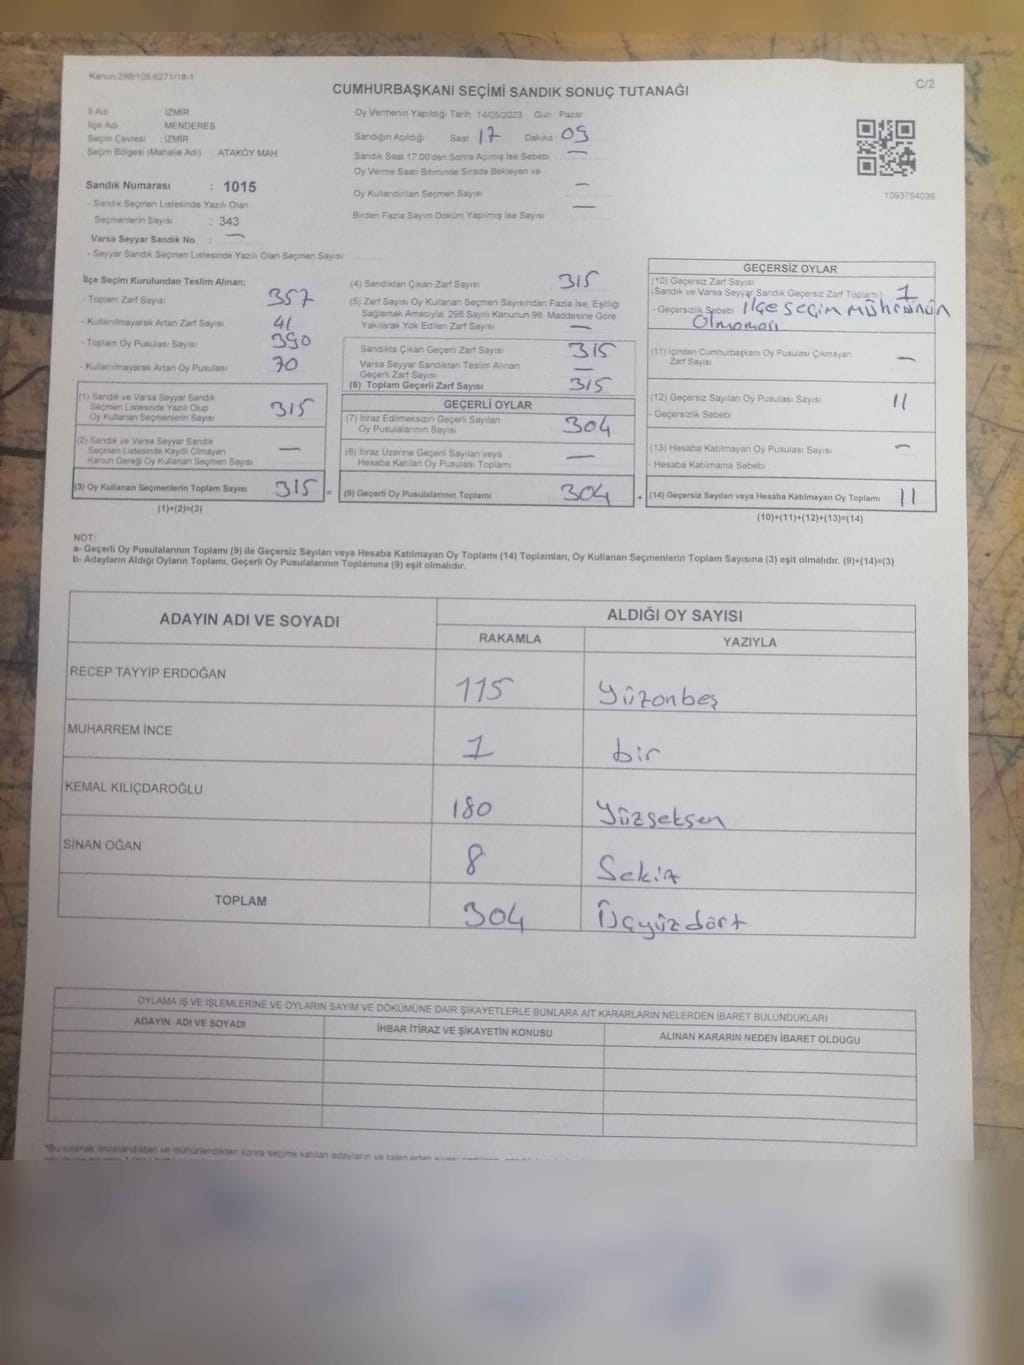 Kanun 298/105 6271/18-1
C/2
CUMHURBAŞKANI SEÇİMİ SANDIK SONUÇ TUTANAĞI
İli Adı İZMİR
İlçe Adı : MENDERES
Seçim Çevresi : İZMİR
Seçim Bölgesi (Mahalle Adı) ATAKÖY MAH
Sandık Numarası : 1015
- Sandık Seçmen Listesinde Yazılı Olan
Seçmenlerin Sayısı : 343
Varsa Seyyar Sandık No : —
- Seyyar Sandık Seçmen Listesinde Yazılı Olan Seçmen Sayısı
Oy Vermenin Yapıldığı Tarih 14/05/2023 Gün Pazar
Sandığın Açıldığı Saat 17 Dakika 09
Sandık Saat 17:00'den Sonra Açılmış İse Sebebi —
Oy Verme Saati Bitiminde Sırada Bekleyen ve
Oy Kullandırılan Seçmen Sayısı —
Birden Fazla Sayım Döküm Yapılmış İse Sayısı —
1093754036
İlçe Seçim Kurulundan Teslim Alınan;
- Toplam Zarf Sayısı 357
- Kullanılmayarak Artan Zarf Sayısı 41
- Toplam Oy Pusulası Sayısı 390
- Kullanılmayarak Artan Oy Pusulası 70
(1) Sandık ve Varsa Seyyar Sandık
Seçmen Listesinde Yazılı Olup
Oy Kullanan Seçmenlerin Sayısı 315
(2) Sandık ve Varsa Seyyar Sandık
Seçmen Listesinde Kayıtlı Olmayan
Kanun Gereği Oy Kullanan Seçmen Sayısı —
(3) Oy Kullanan Seçmenlerin Toplam Sayısı 315 =
(1)+(2)=(3)
(4) Sandıktan Çıkan Zarf Sayısı 315
(5) Zarf Sayısı Oy Kullanan Seçmen Sayısından Fazla İse, Eşitliği
Sağlamak Amacıyla, 298 Sayılı Kanunun 98. Maddesine Göre
Yakılarak Yok Edilen Zarf Sayısı —
Sandıkta Çıkan Geçerli Zarf Sayısı 315
Varsa Seyyar Sandıktan Teslim Alınan
Geçerli Zarf Sayısı —
(6) Toplam Geçerli Zarf Sayısı 315
GEÇERLİ OYLAR
(7) İtiraz Edilmeksizin Geçerli Sayılan
Oy Pusulalarının Sayısı 304
(8) İtiraz Üzerine Geçerli Sayılan veya
Hesaba Katılan Oy Pusulası Toplamı —
(9) Geçerli Oy Pusulalarının Toplamı 304 +
GEÇERSİZ OYLAR
(10) Geçersiz Zarf Sayısı
(Sandık ve Varsa Seyyar Sandık Geçersiz Zarf Toplamı) 1
- Geçersizlik Sebebi İlçe seçim mührünün
Olmaması
(11) İçinden Cumhurbaşkanı Oy Pusulası Çıkmayan
Zarf Sayısı —
(12) Geçersiz Sayılan Oy Pusulası Sayısı 11
- Geçersizlik Sebebi
(13) Hesaba Katılmayan Oy Pusulası Sayısı —
- Hesaba Katılmama Sebebi
(14) Geçersiz Sayılan veya Hesaba Katılmayan Oy Toplamı 11
(10)+(11)+(12)+(13)=(14)
NOT:
a- Geçerli Oy Pusulalarının Toplamı (9) ile Geçersiz Sayılan veya Hesaba Katılmayan Oy Toplamı (14) Toplamları, Oy Kullanan Seçmenlerin Toplam Sayısına (3) eşit olmalıdır. (9)+(14)=(3)
b- Adayların Aldığı Oyların Toplamı, Geçerli Oy Pusulalarının Toplamına (9) eşit olmalıdır.
ADAYIN ADI VE SOYADI
ALDIĞI OY SAYISI
RAKAMLA YAZIYLA
RECEP TAYYİP ERDOĞAN 115 Yüzonbeş
MUHARREM İNCE 1 bir
KEMAL KILIÇDAROĞLU 180 Yüzseksen
SİNAN OĞAN 8 Sekiz
TOPLAM 304 Üçyüzdört
OYLAMA İŞ VE İŞLEMLERİNE VE OYLARIN SAYIM VE DÖKÜMÜNE DAİR ŞİKAYETLERLE BUNLARA AİT KARARLARIN NELERDEN İBARET BULUNDUKLARI
ADAYIN ADI VE SOYADI İHBAR İTİRAZ VE ŞİKAYETİN KONUSU ALINAN KARARIN NEDEN İBARET OLDUĞU
*Bu tutanak imzalandıktan ve mühürlendikten sonra seçime katılan adayların ve talep eden siyasi